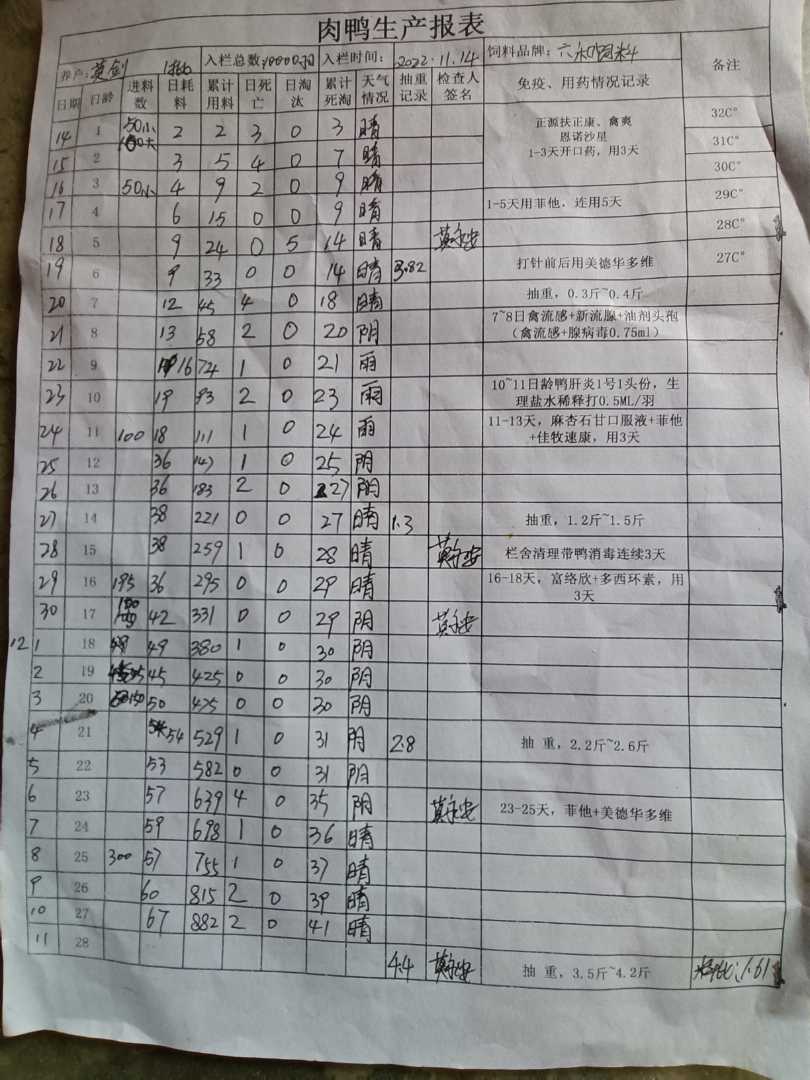 肉鸭生产报表
养户: 莫剑 入栏总数: 入栏时间: 2022.11.14 饲料品牌: 六和饲料 备注
日期 日龄 进料数 日耗料 累计用料 日死亡 日淘汰 累计死淘 天气情况 抽重记录 检查人签名 免疫、用药情况记录
14 1 50小 2 2 3 0 3 晴 正源扶正康、禽爽 32C°
恩诺沙星
15 2 3 5 4 0 7 晴 1-3天开口药，用3天 31C°
30C°
16 3 50小 4 9 2 0 9 晴
17 4 6 15 0 0 9 晴 1-5天用菲他，连用5天 29C°
18 5 9 24 0 5 14 晴 28C°
19 6 9 33 0 0 14 晴 3.82 打针前后用美德华多维 27C°
20 7 12 45 4 0 18 晴 抽重，0.3斤~0.4斤
21 8 13 58 2 0 20 阴 7~8日禽流感+新流腺+油剂头孢
（禽流感+腺病毒0.75ml）
22 9 16 74 1 0 21 雨
23 10 19 93 2 0 23 雨 10~11日龄鸭肝炎1号1头份，生
理盐水稀释打0.5ML/羽
24 11 100 18 111 1 0 24 雨 11-13天，麻杏石甘口服液+菲他
+佳牧速康，用3天
25 12 36 147 1 0 25 阴
26 13 36 183 2 0 27 阴
27 14 38 221 0 0 27 晴 1.3 抽重，1.2斤~1.5斤
28 15 38 259 1 0 28 晴 栏舍清理带鸭消毒连续3天
29 16 195 36 295 0 0 29 晴 16-18天，富络欣+多西环素，用
3天
30 17 42 331 0 0 29 阴
12 1 18 49 380 1 0 30 阴
2 19 45 425 0 0 30 阴
3 20 150 50 475 0 0 30 阴
4 21 54 529 1 0 31 阴 2.8 抽 重，2.2斤~2.6斤
5 22 53 582 0 0 31 阴
6 23 57 639 4 0 35 阴 23-25天，菲他+美德华多维
7 24 59 698 1 0 36 晴
8 25 300 57 755 1 0 37 晴
9 26 60 815 2 0 39 晴
10 27 67 882 2 0 41 晴
11 28
4.4 抽 重，3.5斤~4.2斤 料肉比:1.61